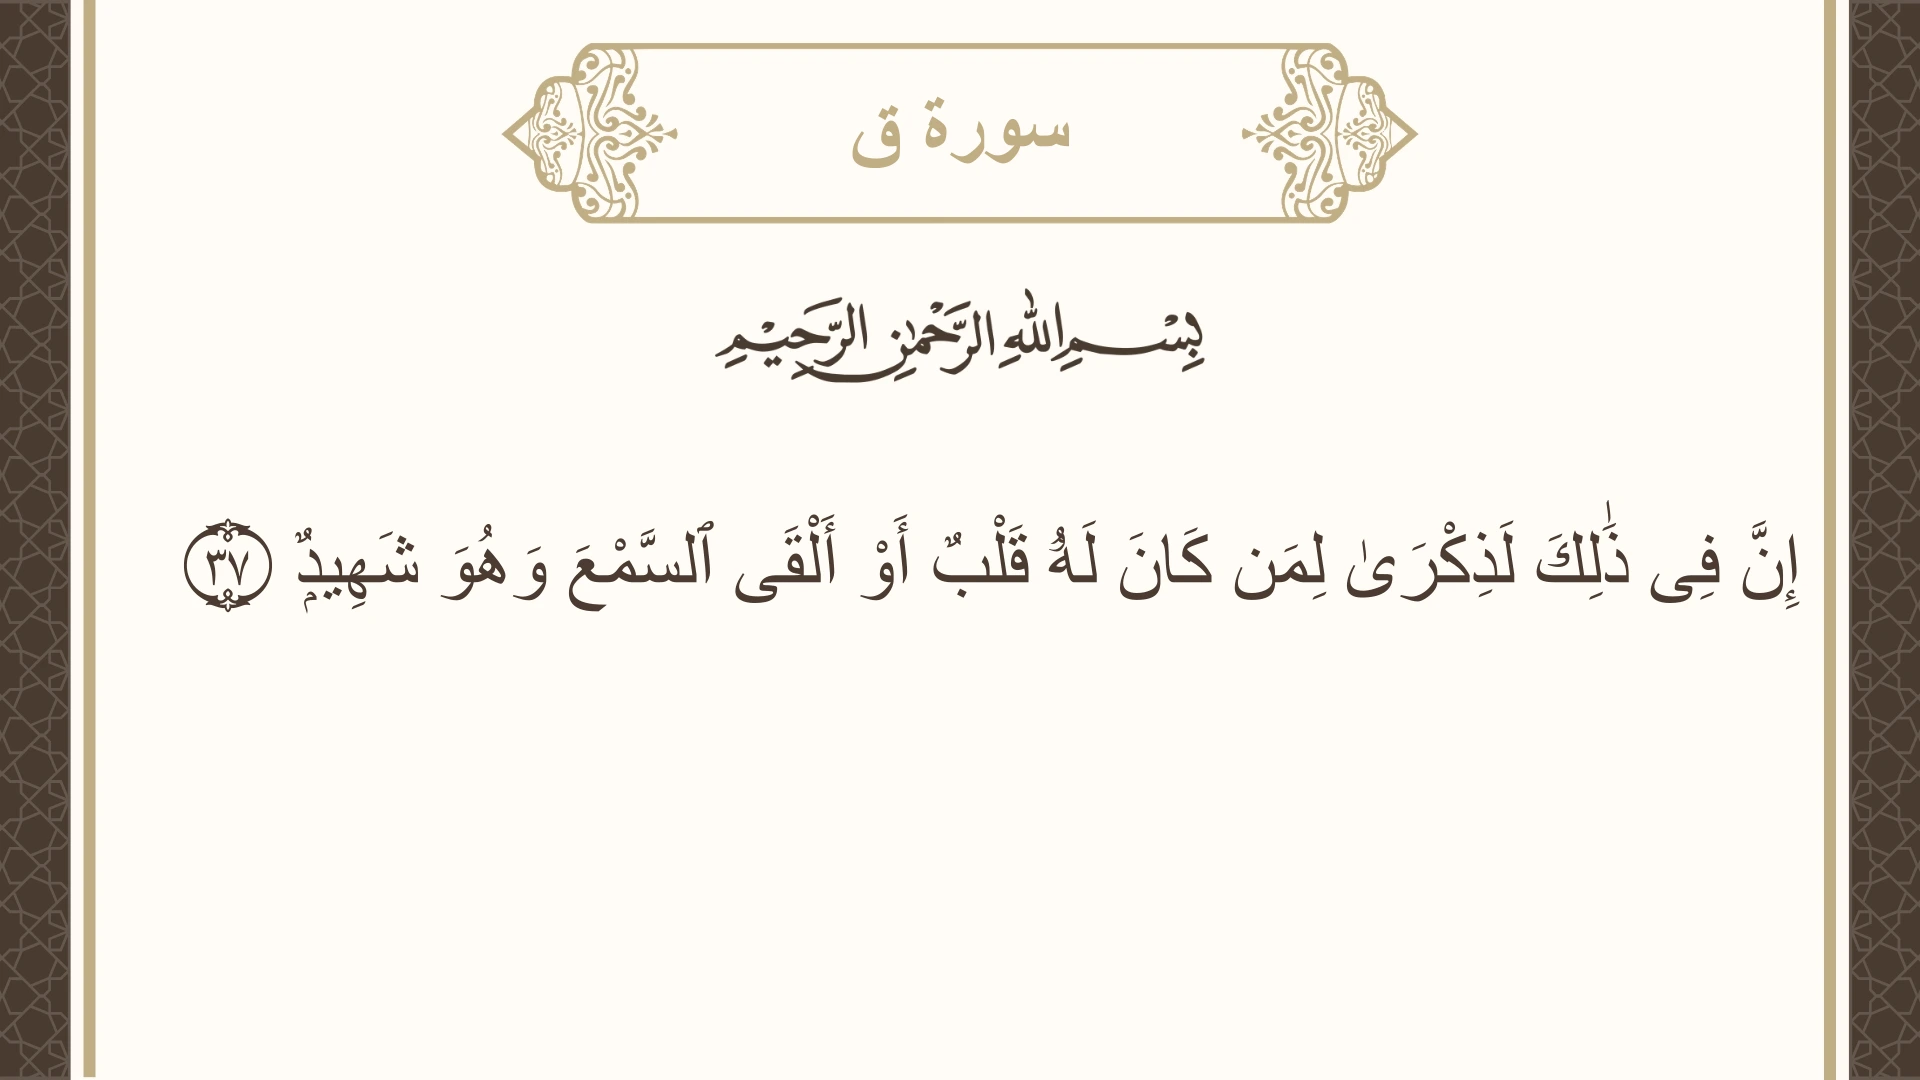 سورة ق
بِسْمِ اللهِ الرَّحْمٰنِ الرَّحِيْمِ
إِنَّ فِى ذَٰلِكَ لَذِكْرَىٰ لِمَن كَانَ لَهُۥ قَلْبٌ أَوْ أَلْقَى ٱلسَّمْعَ وَهُوَ شَهِيدٌۭ ٣٧